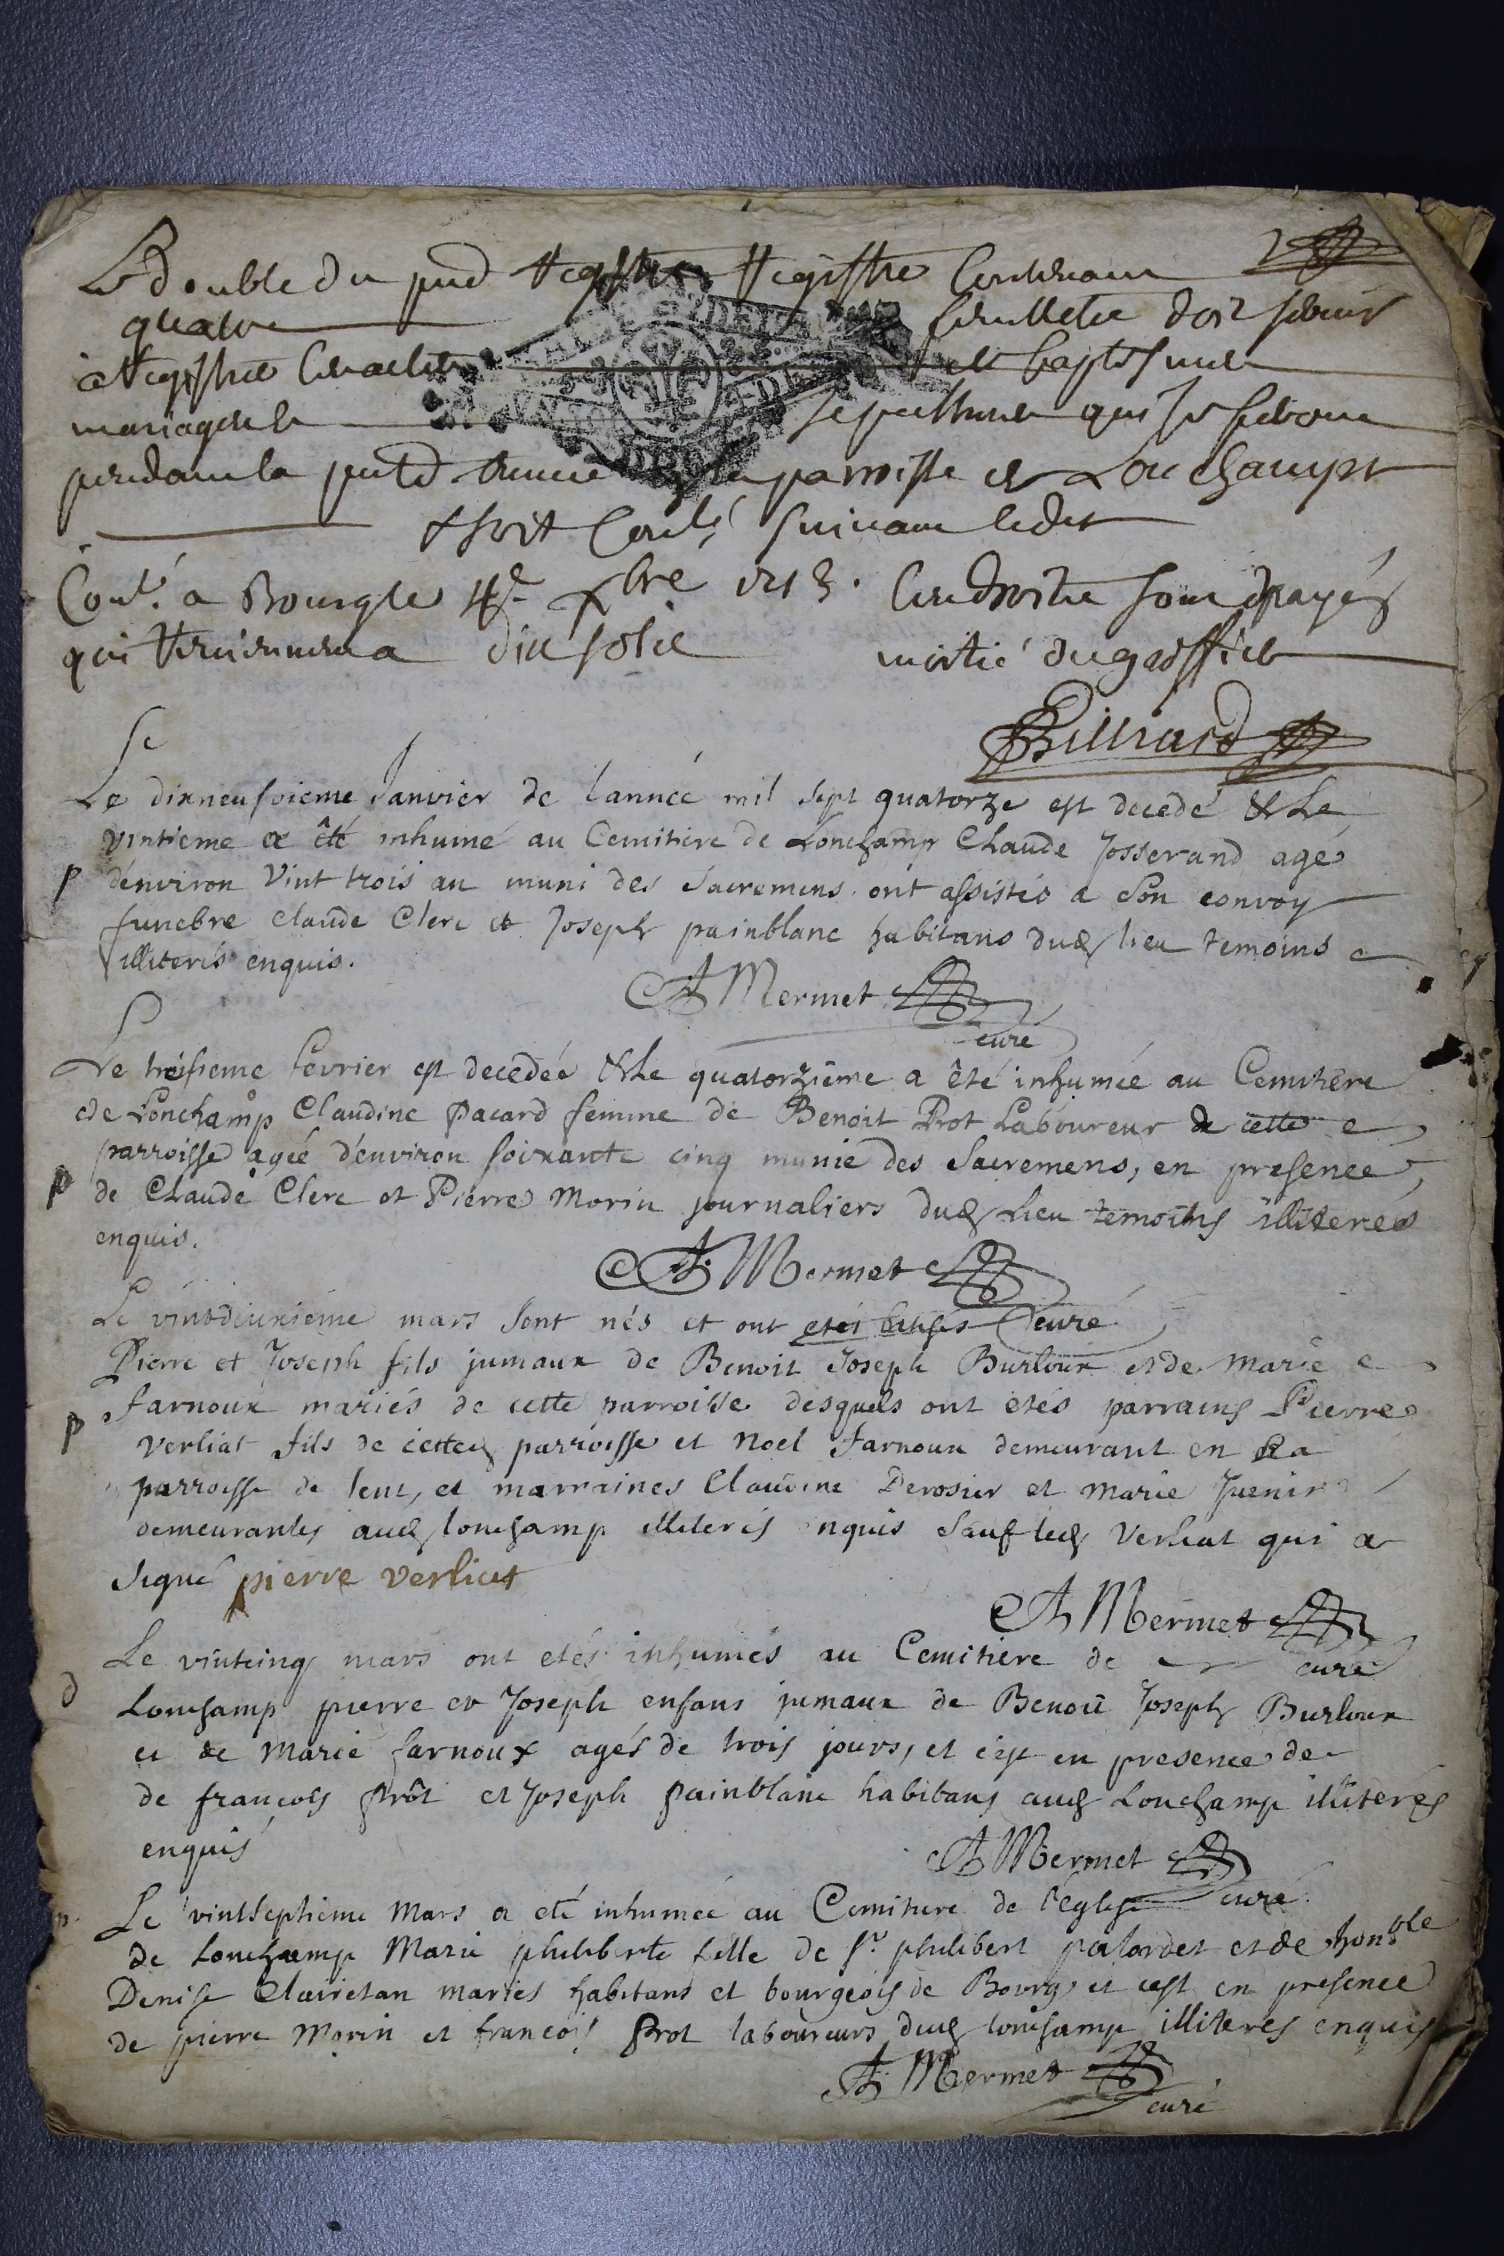 Le double du pnt Registre Registre Contenant
quatre feuillets doit servir
a Registre les actes de baptesmes
mariages et sepultures qui se feront
pendant la pnte année en la parroisse de Lonchamps
& sera Conlé suivant ledit
Conlé a Bourg le 4e xbre 1713. Les droits sont payés
qui Reviennent a dix sols moitié du greffier
Billiard
Le dixneufvieme Janvier de l'année mil sept quatorze est decedé & Le
vintieme a êté inhumé au Cemitiere de Lonchamp Claude Josserand agé
d'environ Vint trois an muni des Sacremens ont assistés a Son convoy
p
funebre claude Clerc et Joseph painblanc habitans dud lieu temoins
illiterés enquis.
A Mermet
curé
Le treisieme fevrier est decedée & Le quatorzieme a êté inhumée au Cemitiere
de Lonchamp Claudine pacard femme de Benoit Prot Laboureur de cette
parroisse agée d'environ soixante cinq munie des Sacremens, en presence
p
de Claude Clerc et Pierre Morin journaliers dud Lieu temoins illiterés
enquis.
A. Mermet
Le vintdeuxieme mars sont nés et ont etés batisés curé
Pierre et Joseph fils jumaux de Benoit Joseph Burloux et de Marie
farnoux mariés de cette parroisse desquels ont etés parrains Pierre
p
verliat fils de cette parroisse et Noel farnoux demeurant en La
parroisse de lent, et marraines Claudine Perosier et Marie Juenin
demeurantes aud lonchamp illiterés enquis Sauf led Verliat qui a
signé pierre verliat
A Mermet
Le vintcinq mars ont etés inhumés au Cemitiere de curé
d
Lonchamp pierre et Joseph enfans jumaux de Benoit Joseph Burloux
et de Marie farnoux agés de trois jours, et c'est en presence de
de francois Prôt et Joseph painblanc habitans aud Lonchamp illiterés
enquis
A Mermet
Le vintseptieme Mars a eté inhumée au Cemitiere de l'eglise curé
de Lonchamp Marie philiberte fille de Sr philibert palordet et de honble
Denise Clairetan mariés habitans et bourgeois de Bourg et cest en presence
de pierre Morin et francois Prot laboureurs dud lonchamp illiteres enquis
A. Mermet
curé